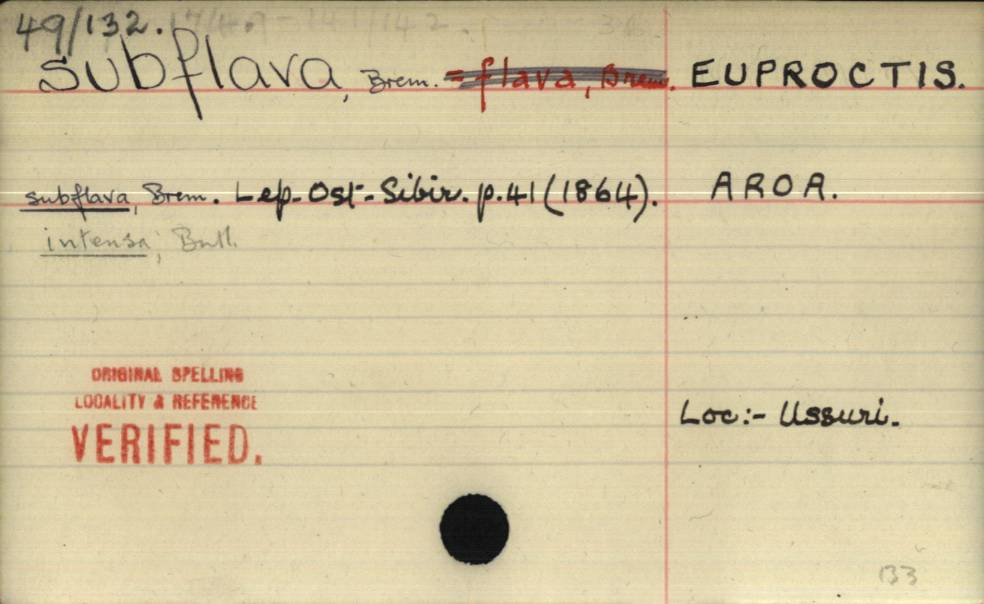 49/132.
subflava, Brem. = flava, Brem. EUPROCTIS.
subflava, Brem. Lep. Ost-Sibir. p.41 (1864). AROA.
intensa, Butl.
ORIGINAL SPELLING
LOCALITY & REFERENCE
VERIFIED.
Loc:- Ussuri.
133